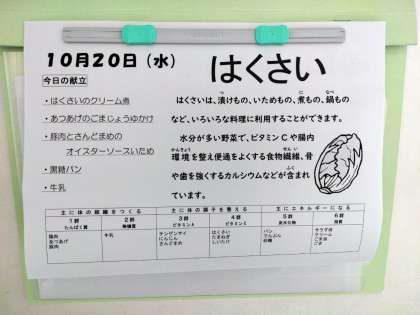 10月20日（水）
はくさい
今日の献立
・はくさいのクリーム煮
・あつあげのごまじょうゆかけ
・豚肉とさんどまめの
オイスターソースいため
・黒糖パン
・牛乳
はくさいは、漬けもの、いためもの、煮もの、鍋もの
など、いろいろな料理に利用することができます。
水分が多い野菜で、ビタミンCや腸内
環境を整え便通をよくする食物繊維、骨
や歯を強くするカルシウムなどが含まれ
ています。
主に体の組織をつくる 主に体の調子を整える 主にエネルギーになる
1群 2群 3群 4群 5群 6群
たんぱく質 無機質 ビタミンA ビタミンC 炭水化物 脂質
鶏肉 牛乳 チンゲンサイ はくさい パン サラダ油
あつあげ にんじん たまねぎ でんぷん クリーム
豚肉 さんどまめ しいたけ 砂糖 ごま油
ごま